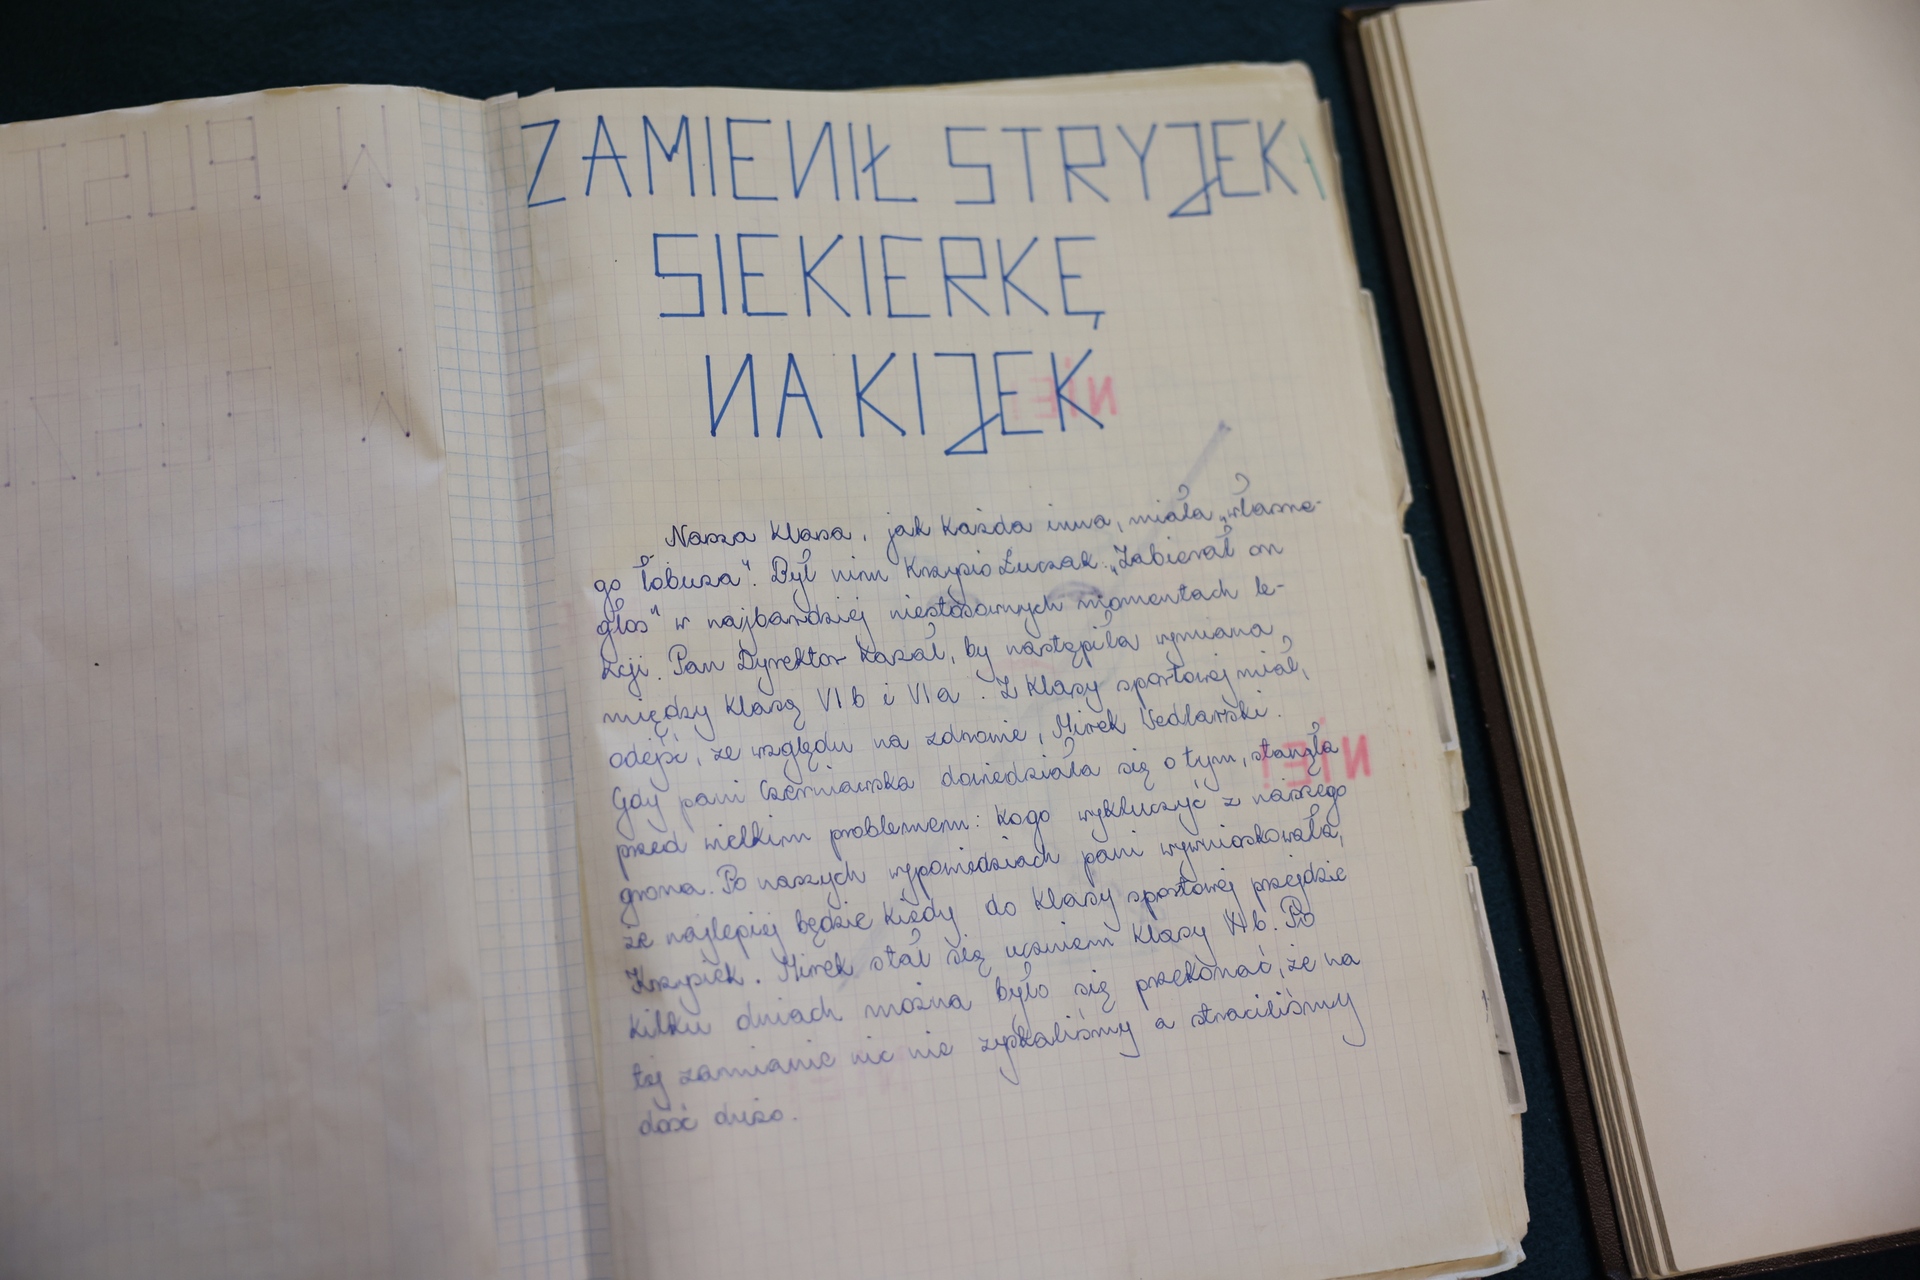 ZAMIENIŁ STRYJEK
SIEKIERKĘ
NA KIJEK
Nasza klasa, jak każda inna, miała „własne-
go łobuza". Był nim Krzysio Łuczak. „Zabierał on
głos" w najbardziej niestosownych momentach le-
kcji. Pan Dyrektor kazał, by nastąpiła wymiana
między klasą VI b i VI a. Z klasy sportowej miał
odejść, ze względu na zdrowie, Mirek
Gdy pani Czerniawska dowiedziała się o tym, stanęła
przed wielkim problemem: kogo wykluczyć z naszego
grona. Po naszych wypowiedziach pani wywnioskowała,
że najlepiej będzie kiedy do klasy sportowej przejdzie
Krzysiek. Mirek stał się uczniem klasy VI b. Po
kilku dniach można było się przekonać, że na
tej zamianie nic nie zyskaliśmy a straciliśmy
dość dużo.
NIE
NIE!